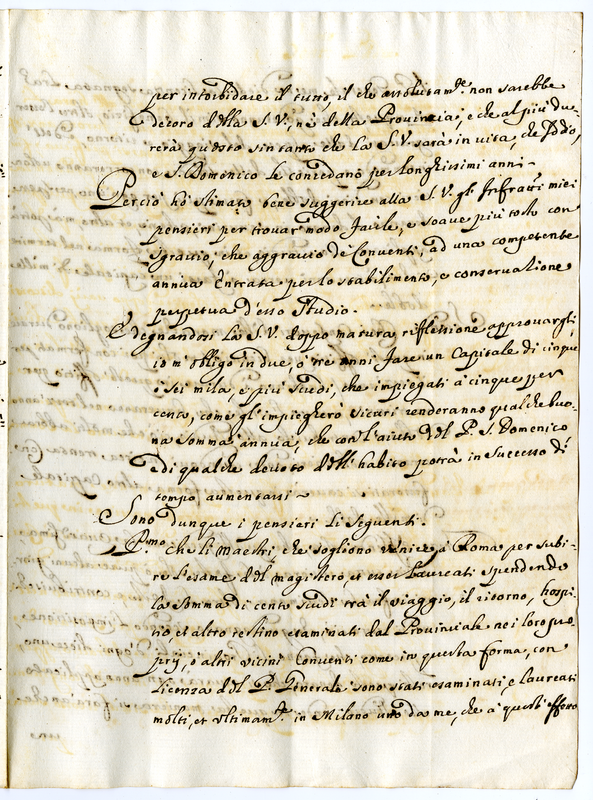 per intorbidare il tutto, il che assolutam.te non sarebbe
decoro della S. V., nè della Provincia, e che al più du-
rerà questo sin tanto che la S. V. sarà in vita, che Iddio,
e S. Domenico le concedano per longhissimi anni -
Perciò hò stimato bene suggerire alla S. V. gl'infratti miei
pensieri per trovar modo facile, e soave più tosto con
sgravio, che aggravio de Conventi, ad una competente
annua Entrata per lo stabilimento, e conservatione
perpetua d'esso Studio.
E degnandosi la S. V. doppo matura riflessione approvargli,
io m'obligo in due, ò tre anni fare un Capitale di cinque
ò sei mila, e più scudi, che impiegati à cinque per
cento, come gl'impiegherò sicuri renderanno qualche buo-
na somma annua, che con l'aiuto del P. S. Domenico
e di qualche devoto dell'habito potrà in successo di
tempo aumentarsi ~
Sono dunque i pensieri li seguenti.
P.mo che li Maestri, che sogliono venire à Roma per subi-
re l'esame del magistero, et esser laureati spendendo
la somma di cento scudi trà il viaggio, il ritorno, hospi-
tio et altro restino esaminati dal Provinciale ne i loro pro-
prij, ò altri vicini Conventi come in questa forma, con
licenza del P. Generale sono stati esaminati, e laureati
molti, et ultimam.te in Milano uno da me, che à questi